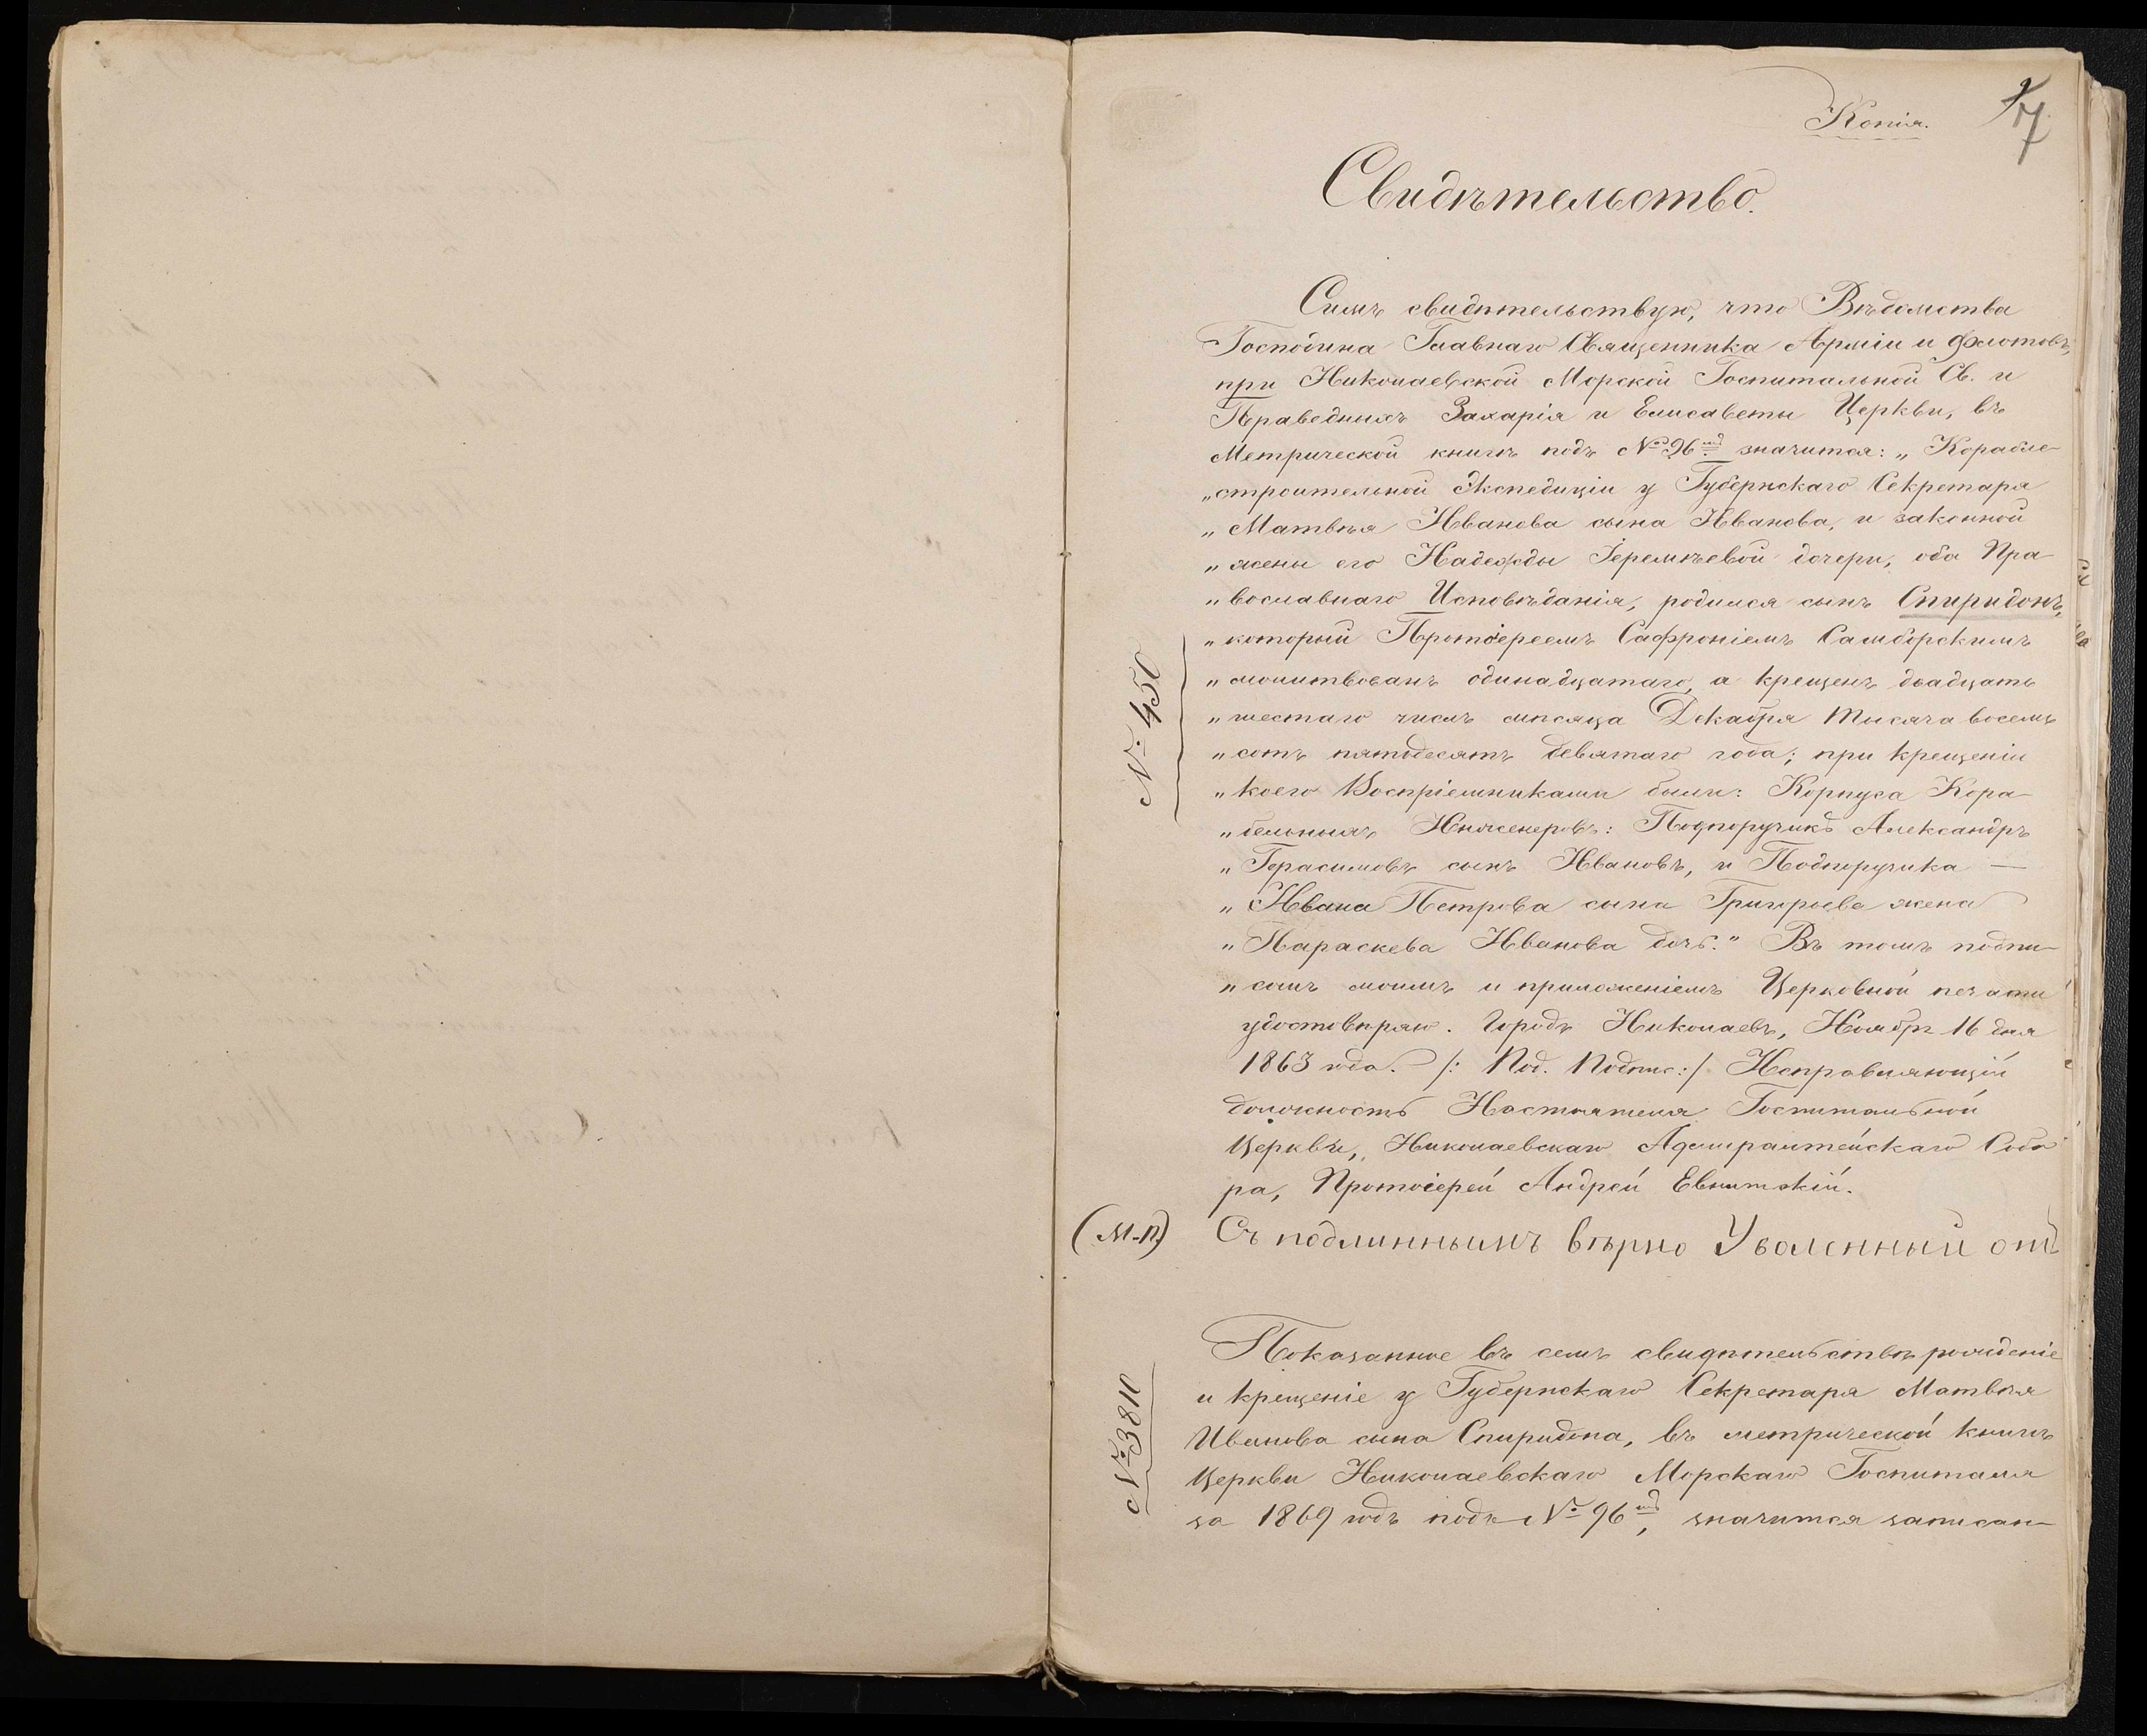 Копія.
7
Свидѣтельство.
Симъ свидѣтельствую, что Вѣдомства
Господина Главнаго Священника Арміи и Флотовъ,
при Николаевской Морской Госпитальной Св. и
Праведныхъ Захарія и Елисаветы Церкви, въ
Метрической книгѣ подъ № 96мъ значится: „Корабле-
„строительной Экспедиціи у Губернскаго Секретаря
„Матвѣя Иванова сына Иванова, и законной
„жены его Надежды Іеремѣевой дочери, оба Пра-
„вославнаго Исповѣданія, родился сынъ Спиридонъ,
„который Протоіереемъ Сафроніемъ Самборскимъ
„молитвованъ одинадцатаго, а крещенъ двадцать
„шестаго числъ мѣсяца Декабря тысяча восемь
„сотъ пятьдесятъ девятаго года; при крещеніи
„коего Воспріемниками были: Корпуса Кора-
„бельныхъ Инженеровъ: Подпоручикъ Александръ
„Герасимовъ сынъ Ивановъ, и Подпоручика —
„Ивана Петрова сына Григорьева жена
„Параскева Иванова дочь." Въ томъ подпи-
„сомъ моимъ и приложеніемъ Церковной печати
удостовѣряю. Городъ Николаевъ, Ноября 16 дня
1863 года. /: Под. Подпис:/ Исправляющій
должность Настоятеля Госпитальной
Церкви, Николаевскаго Адмиралтейскаго Собо
ра, Протоіерей Андрей
(М.П.) Съ подлиннымъ вѣрно Уволенный отъ
№ 450
Показанное въ семъ свидѣтельствѣ рожденіе
и крещеніе у Губернскаго Секретаря Матвѣя
Иванова сына Спиридона, въ метрической книгѣ
Церкви Николаевскаго Морскаго Госпиталя
за 1869 годъ подъ № 96мъ, значится записан-
№ 3810